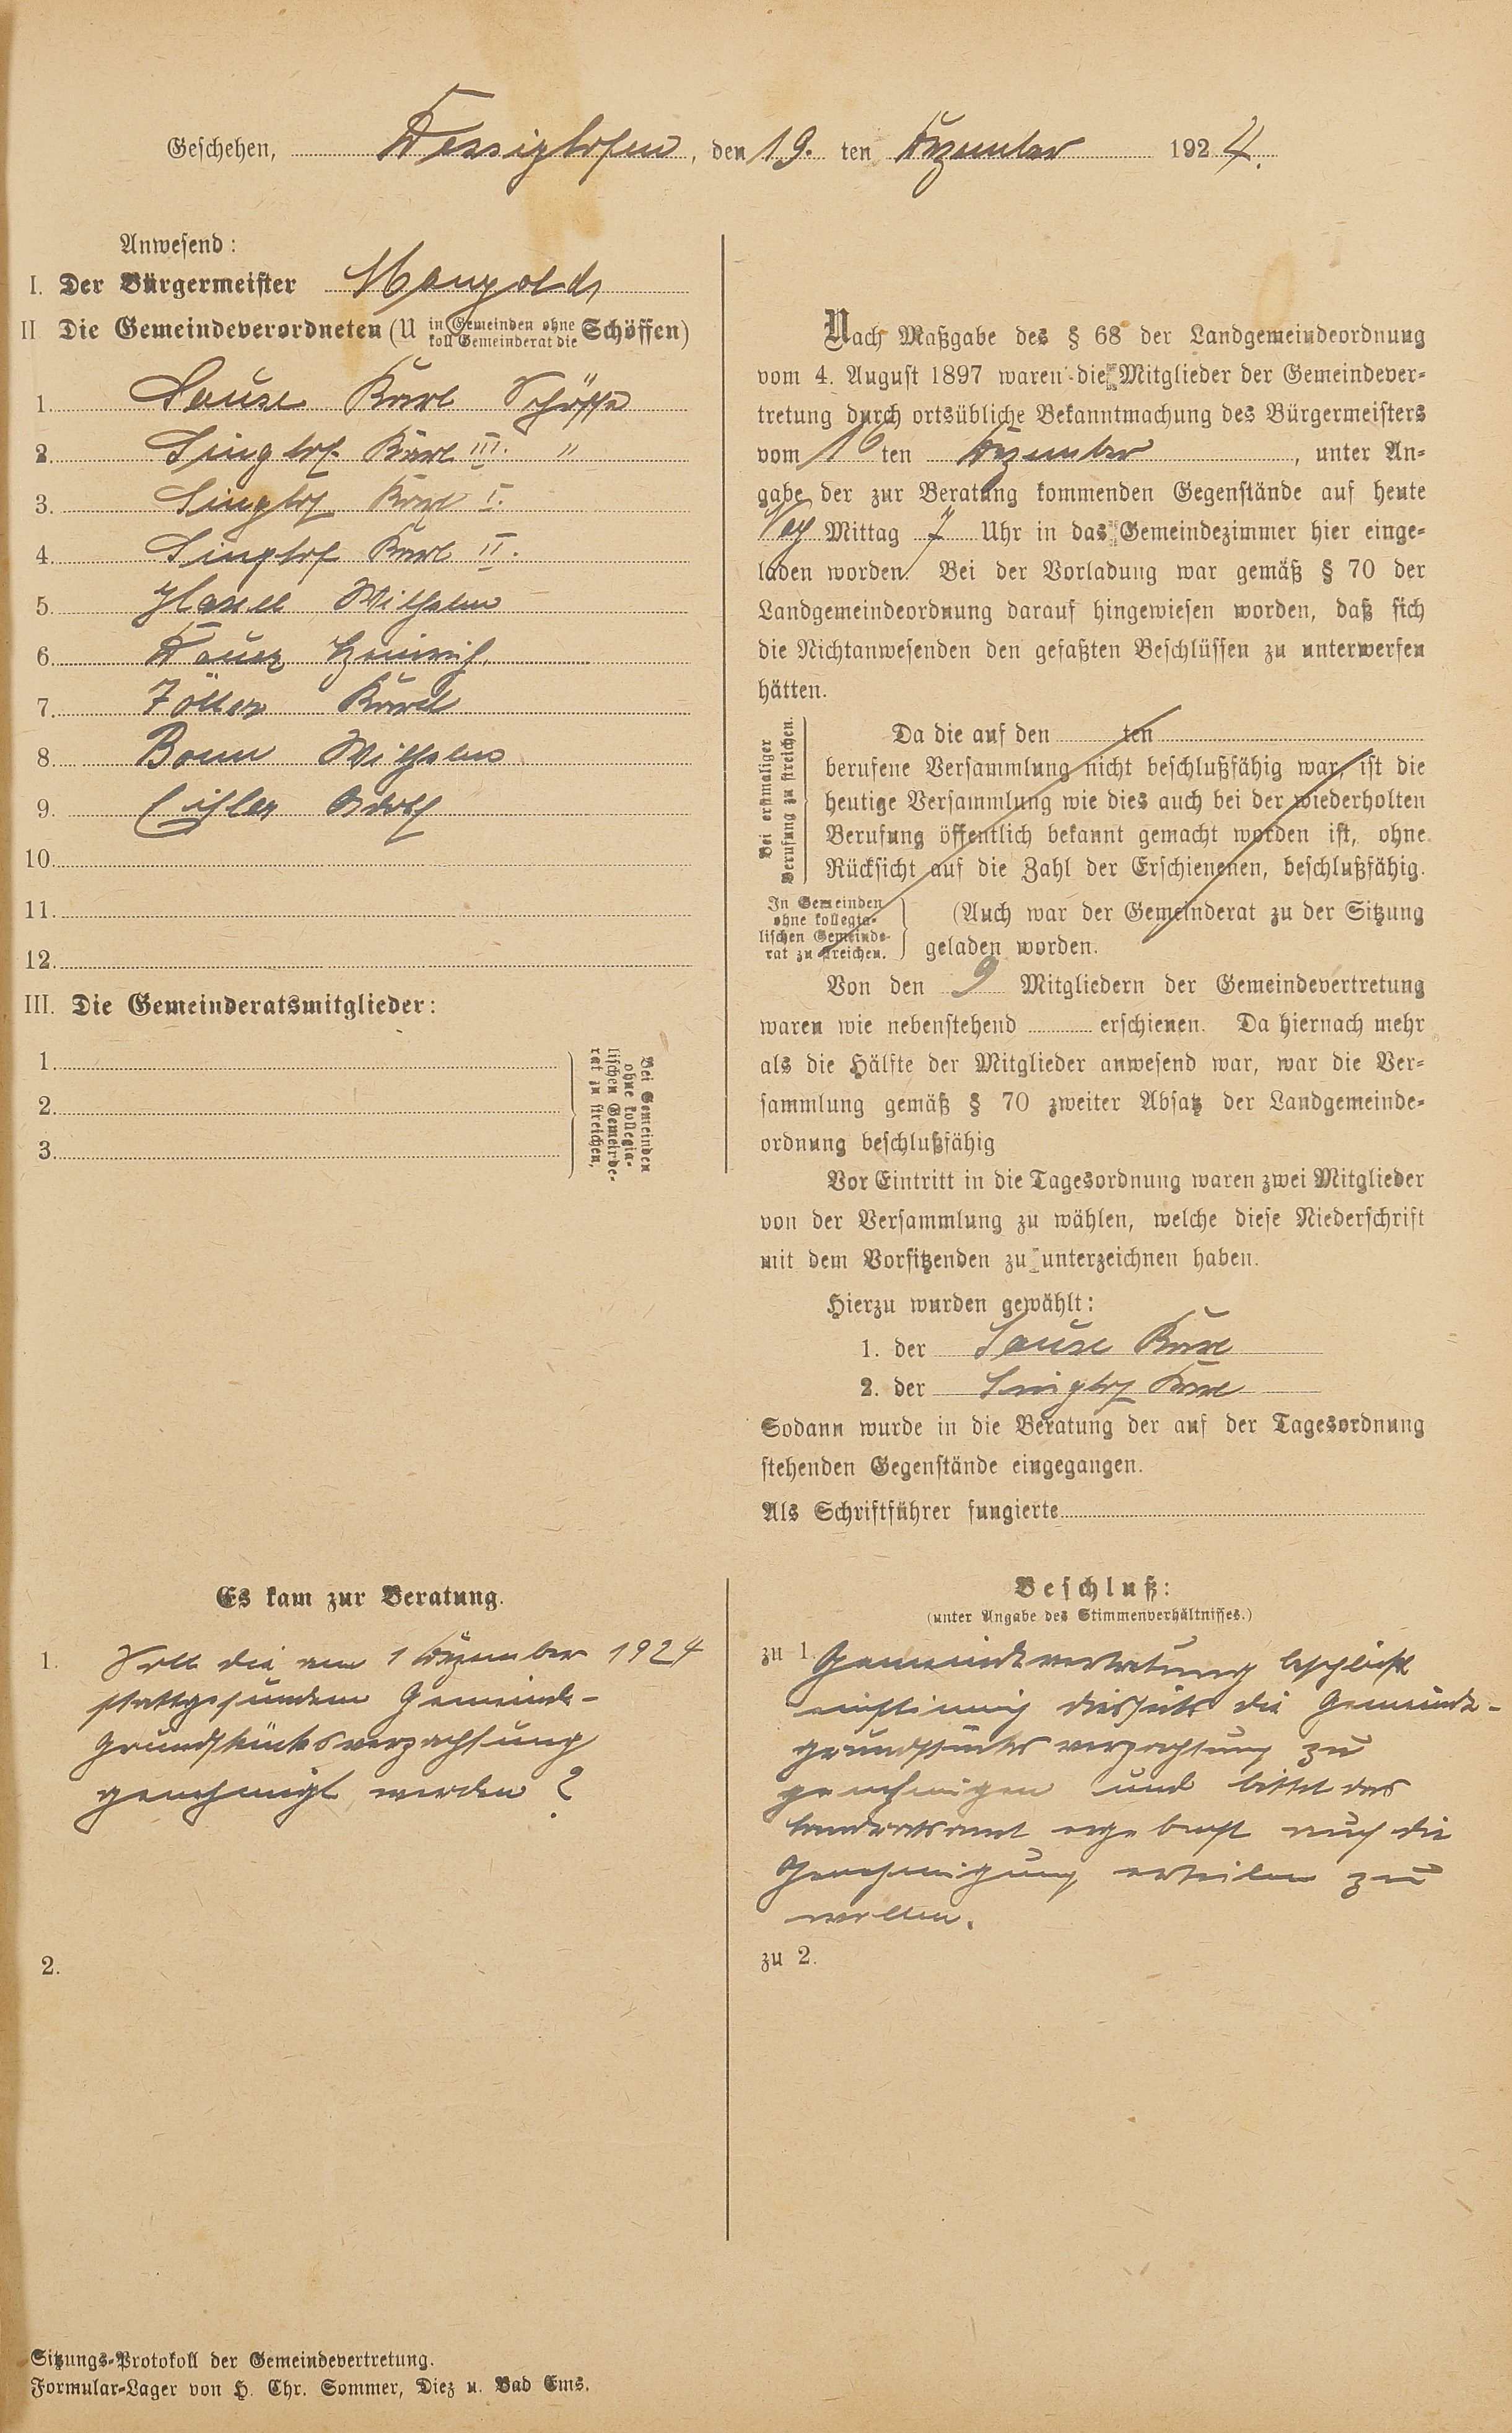 Geschehen, Dessighofen, den 19. ten Dezember 1924.
Anwesend:
I. Der Bürgermeister Mangold
II Die Gemeindeverordneten (U in Gemeinden ohne koll Gemeinderat die Schöffen)
1. Sause Karl Schöffe
2. Singhof Karl III. "
3. Singhof Karl I.
4. Singhof Karl II.
5. Wilhelm
6. Heinrich
7. Zöller Karl
8. Bonn Wilhelm
9. Adolf
10.
11.
12.
III. Die Gemeinderatsmitglieder:
1.
2.
3.
Bei Gemeinden
ohne kollegia-
lischen Gemeinde-
rat zu streichen,
Nach Maßgabe des § 68 der Landgemeindeordnung
vom 4. August 1897 waren die Mitglieder der Gemeindever-
tretung durch ortsübliche Bekanntmachung des Bürgermeisters
vom 16 ten Dezember, unter An-
gabe der zur Beratung kommenden Gegenstände auf heute
Nach Mittag 7 Uhr in das Gemeindezimmer hier einge-
laden worden. Bei der Vorladung war gemäß § 70 der
Landgemeindeordnung darauf hingewiesen worden, daß sich
die Nichtanwesenden den gefaßten Beschlüssen zu unterwerfen
hätten.
Bei erstmaliger
Berufung zu streichen.
Da die auf den ten
berufene Versammlung nicht beschlußfähig war, ist die
heutige Versammlung wie dies auch bei der wiederholten
Berufung öffentlich bekannt gemacht worden ist, ohne
Rücksicht auf die Zahl der Erschienenen, beschlußfähig.
In Gemeinden
ohne kollegia-
lischen Gemeinde-
rat zu streichen.
(Auch war der Gemeinderat zu der Sitzung
geladen worden.
Von den 9 Mitgliedern der Gemeindevertretung
waren wie nebenstehend erschienen. Da hiernach mehr
als die Hälfte der Mitglieder anwesend war, war die Ver-
sammlung gemäß § 70 zweiter Absatz der Landgemeinde-
ordnung beschlußfähig
Vor Eintritt in die Tagesordnung waren zwei Mitglieder
von der Versammlung zu wählen, welche diese Niederschrift
mit dem Vorsitzenden zu unterzeichnen haben.
Hierzu wurden gewählt:
1. der Sause Karl
2. der Singhof Karl
Sodann wurde in die Beratung der auf der Tagesordnung
stehenden Gegenstände eingegangen.
Als Schriftführer fungierte
Es kam zur Beratung.
1. Soll die am 1 Dezember 1924
stattgefundene Gemeinde-
grundstücksverpachtung
genehmigt werden?
2.
Beschluß:
(unter Angabe des Stimmenverhältnisses.)
zu 1. Gemeindevertretung beschließt
einstimmig diesseits die Gemeinde-
grundstücksverpachtung zu
genehmigen und bittet das
Landratsamt ergebenst auch die
Genehmigung erteilen zu
wollen.
zu 2.
Sitzungs-Protokoll der Gemeindevertretung.
Formular-Lager von H. Chr. Sommer, Diez u. Bad Ems.